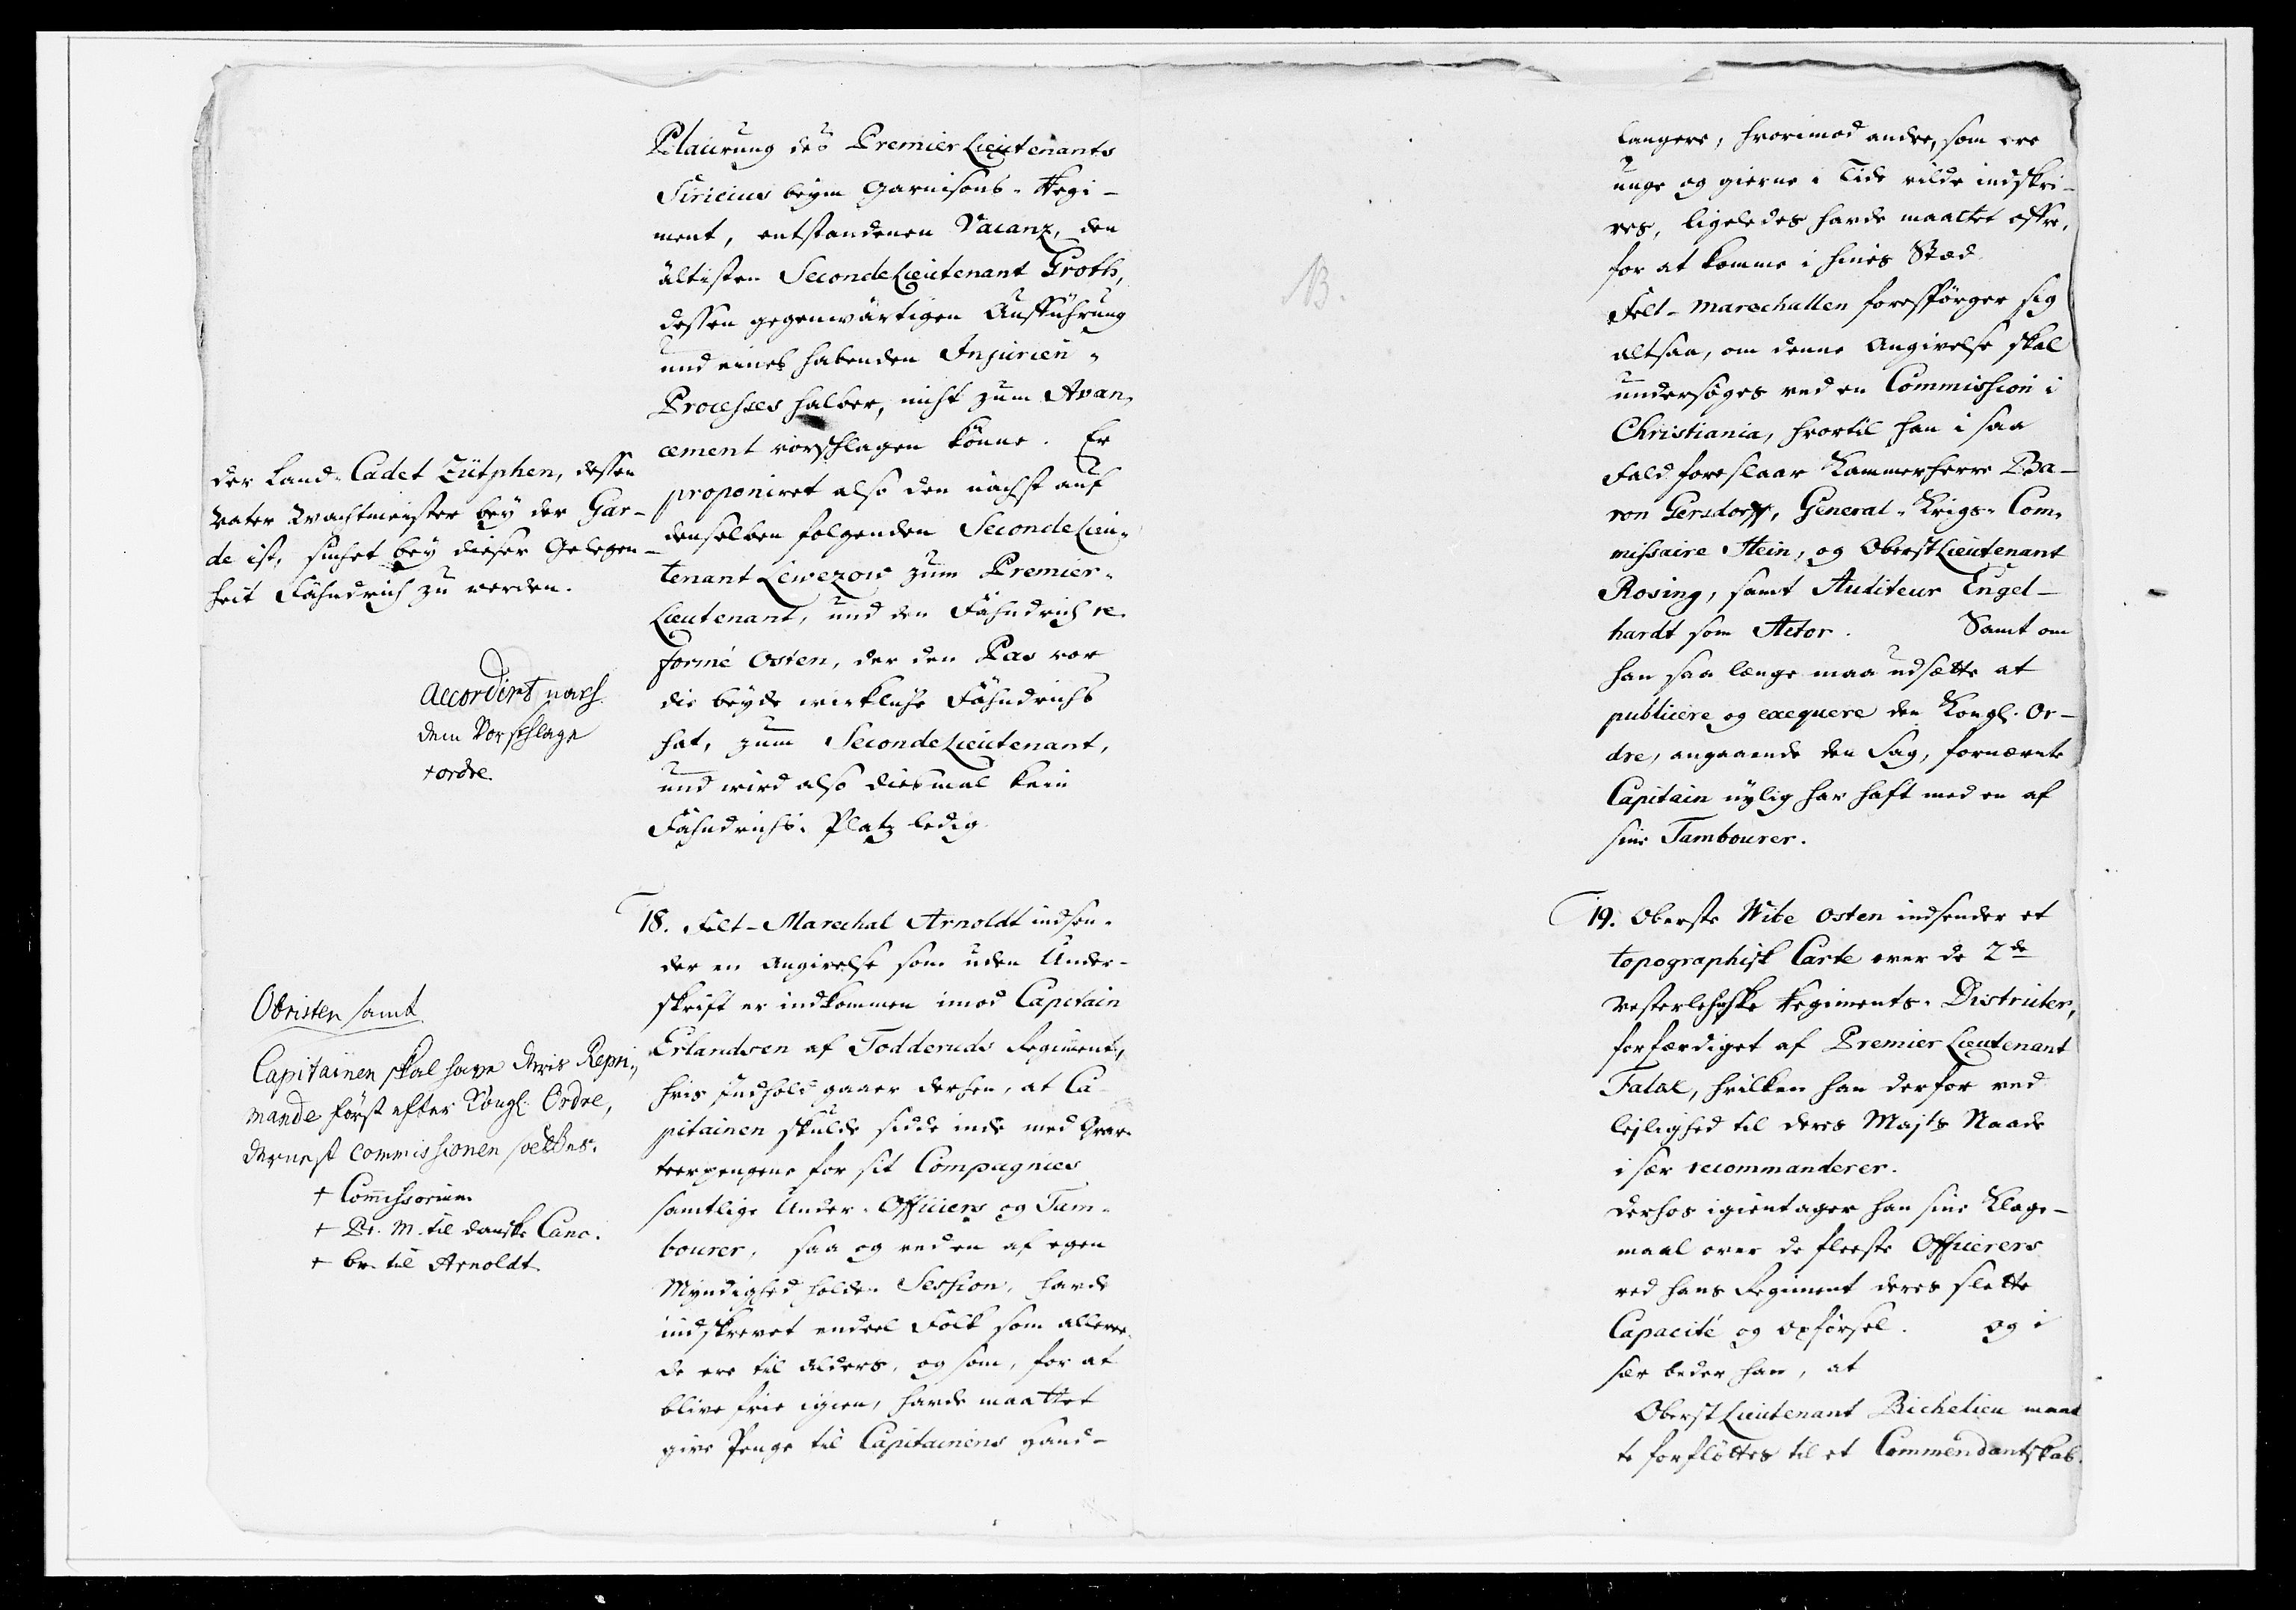 Placirung des Premier Lieutenants
Siricius beym Garnisons-Regi-
ment, entstandenen Vacanz, den
ältisten Seconde Lieutenant Groth,
dessen gegenwärtigen Aufführung
und eines habenden Injurien-
Processes halber, nicht zum Avan-
cement vorschlagen könne. Er
proponiret also den nächst auf
denselben folgenden Seconde Lieu-
tenant Lewezow zum Premier-
Lieutenant, und den Fähndrich re-
formé Osten, der den Pas vor
die beyde wirkliche Fähndrichs
hat, zum Seconde Lieutenant,
und wird also diesmal kein
Fähndrichs-Platz ledig.
der Land-Cadet Zütphen, dessen
Vater Wachtmeister bey der Gar-
de ist, suchet bey dieser Gelegen-
heit Fähndrich zu werden.
Accordirt nach
dem Vorschlage
+ ordre.
18. Felt-Marechal Arnoldt indsen-
der en Angivelse som uden Under-
skrift er indkommen imod Capitain
Erlandsen af Todderuds Regiment,
hvis Indhold gaaer derhen, at Ca-
pitainen skulde sidde inde med Qvar-
teerpengene for sit Compagnies
samtlige Under-Officiers og Tam-
bourer, saa og ved en af egen
Myndighed holden Session, havde
indskrevet endeel Folk som allere-
de ere til Alders, og som, for at
blive frie igien, havde maattet
give Penge til Capitainens Hand-
Obristen samt
Capitainen skal have deris Repri-
mande först efter Kongl. Ordre,
dernest Commissionen settes.
+ Commissorium
+ Pr. M. til danske Canc.
+ br. til Arnoldt
B.
langere, hvorimod andre, som ere
unge og gierne i Tide vilde indskri-
ves, ligeledes havde maattet offre,
for at komme i hines Stæd.
Felt-Marechallen forespörger sig
altsaa, om denne Angivelse skal
undersöges ved en Commission i
Christiania, hvortil han i saa
Fald foreslaar Kammerherre Ba-
ron Gersdorff, General-Krigs-Com-
missaire Stein, og Oberst Lieutenant
Rosing, samt Auditeur Engel-
hardt som Actor. Samt om
han saa længe maa udsætte at
publicere og exequere den Kongl. Or-
dre, angaaende den Sag, fornævnte
Capitain nylig har haft med en af
sine Tambourer.
19. Oberste Wibe Osten indsender et
topographisk Carte over de 2de
Vesterlehnske Regiments-Districter,
forfærdiget af Premier Lieutenant
hvilken han derfor ved
lejlighed til deres Majts Naade
i sær recommanderer.
derhos igientager han sine Klage-
maal over de fleeste Officerers
ved hans Regiment deres slette
Capacité og Opförsel. Og i
sær beder han, at
Oberst Lieutenant Richelieu maat
te forflöttes til et Commendantskab.